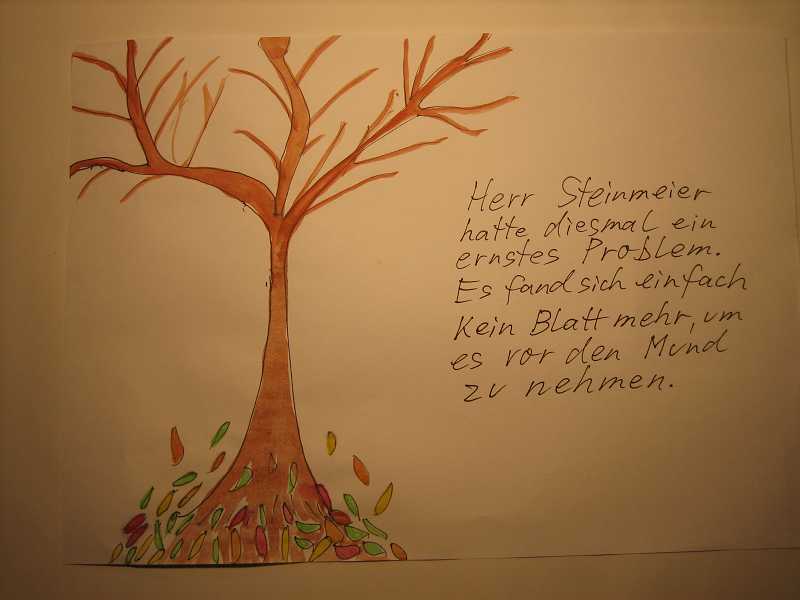 Herr Steinmeier
hatte diesmal ein
ernstes Problem.
Es fand sich einfach
kein Blatt mehr, um
es vor den Mund
zu nehmen.